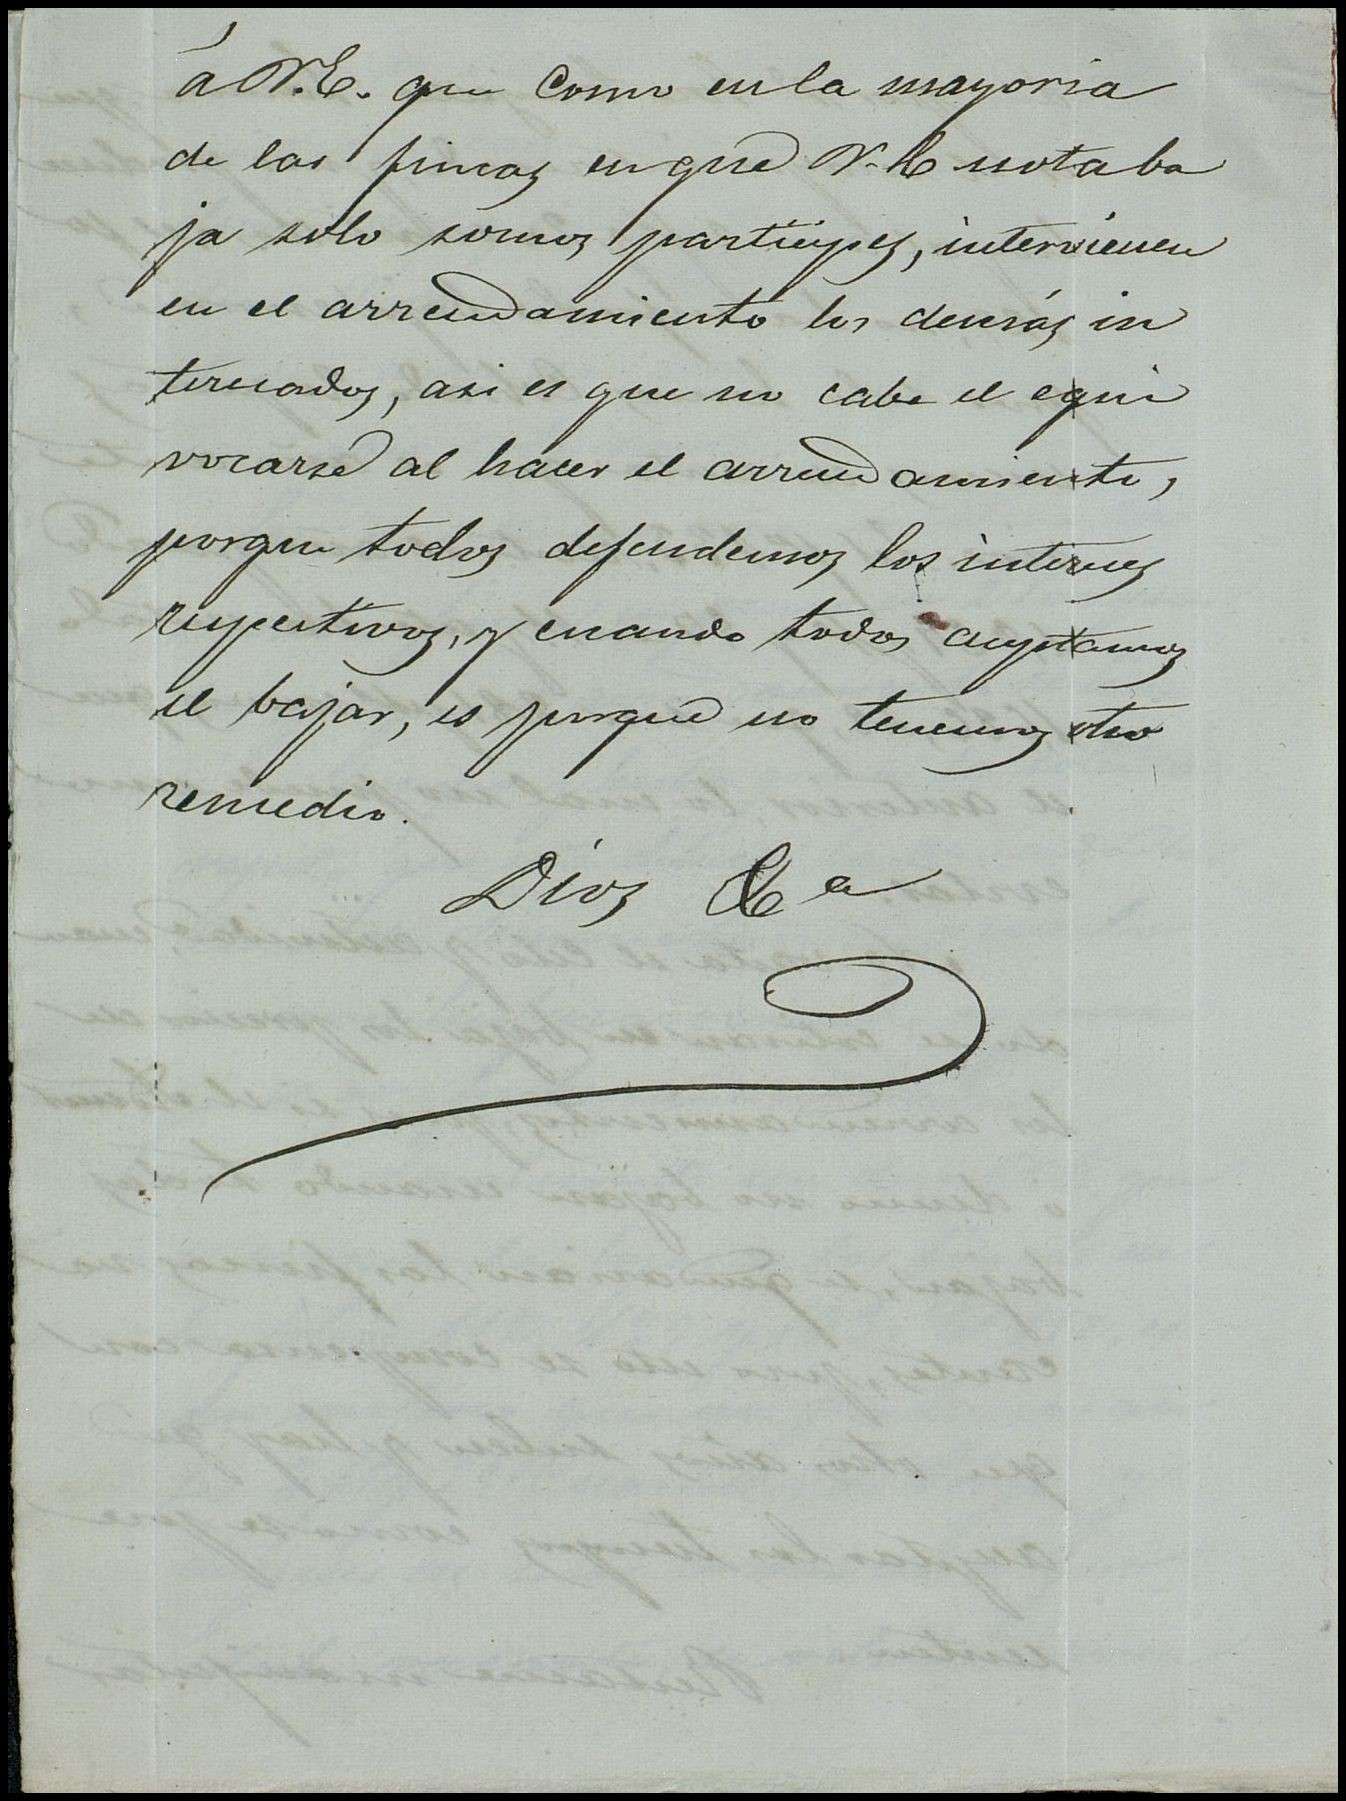 á V.E. que como en la mayoria
de las fincas en que V.E notaba
ja solo somos participes, intervienen
en el arrendamiento los demás in
teresados, asi es que no cabe el equi
vocarse al hacer el arrendamiento,
porque todos defendemos los intereses
respectivos, y cuando todos aceptamos
el bajar, es porque no tenemos otro
remedio.
Dios &a